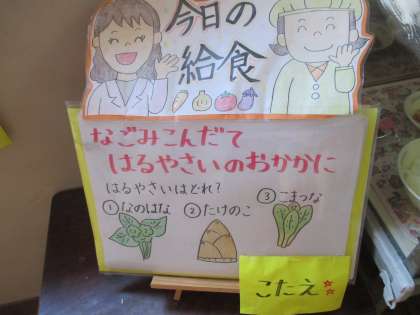 今日の
給食
なごみこんだて
はるやさいのおかかに
はるやさいはどれ?
①なのはな ②たけのこ ③こまつな
こたえ☆☆